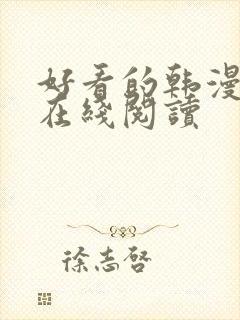 好看的韩漫
在线阅读
徐志啓